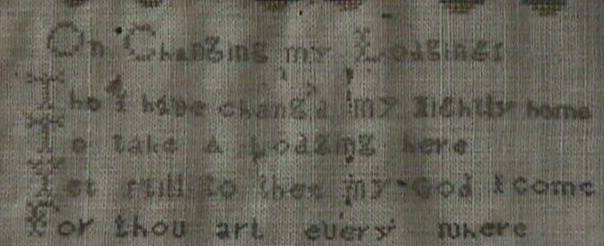 On Changing my Lodgings
Tho I have chang'd my nightly home
To take a Lodging here
Yet still to thee my God I come
For thou art every where